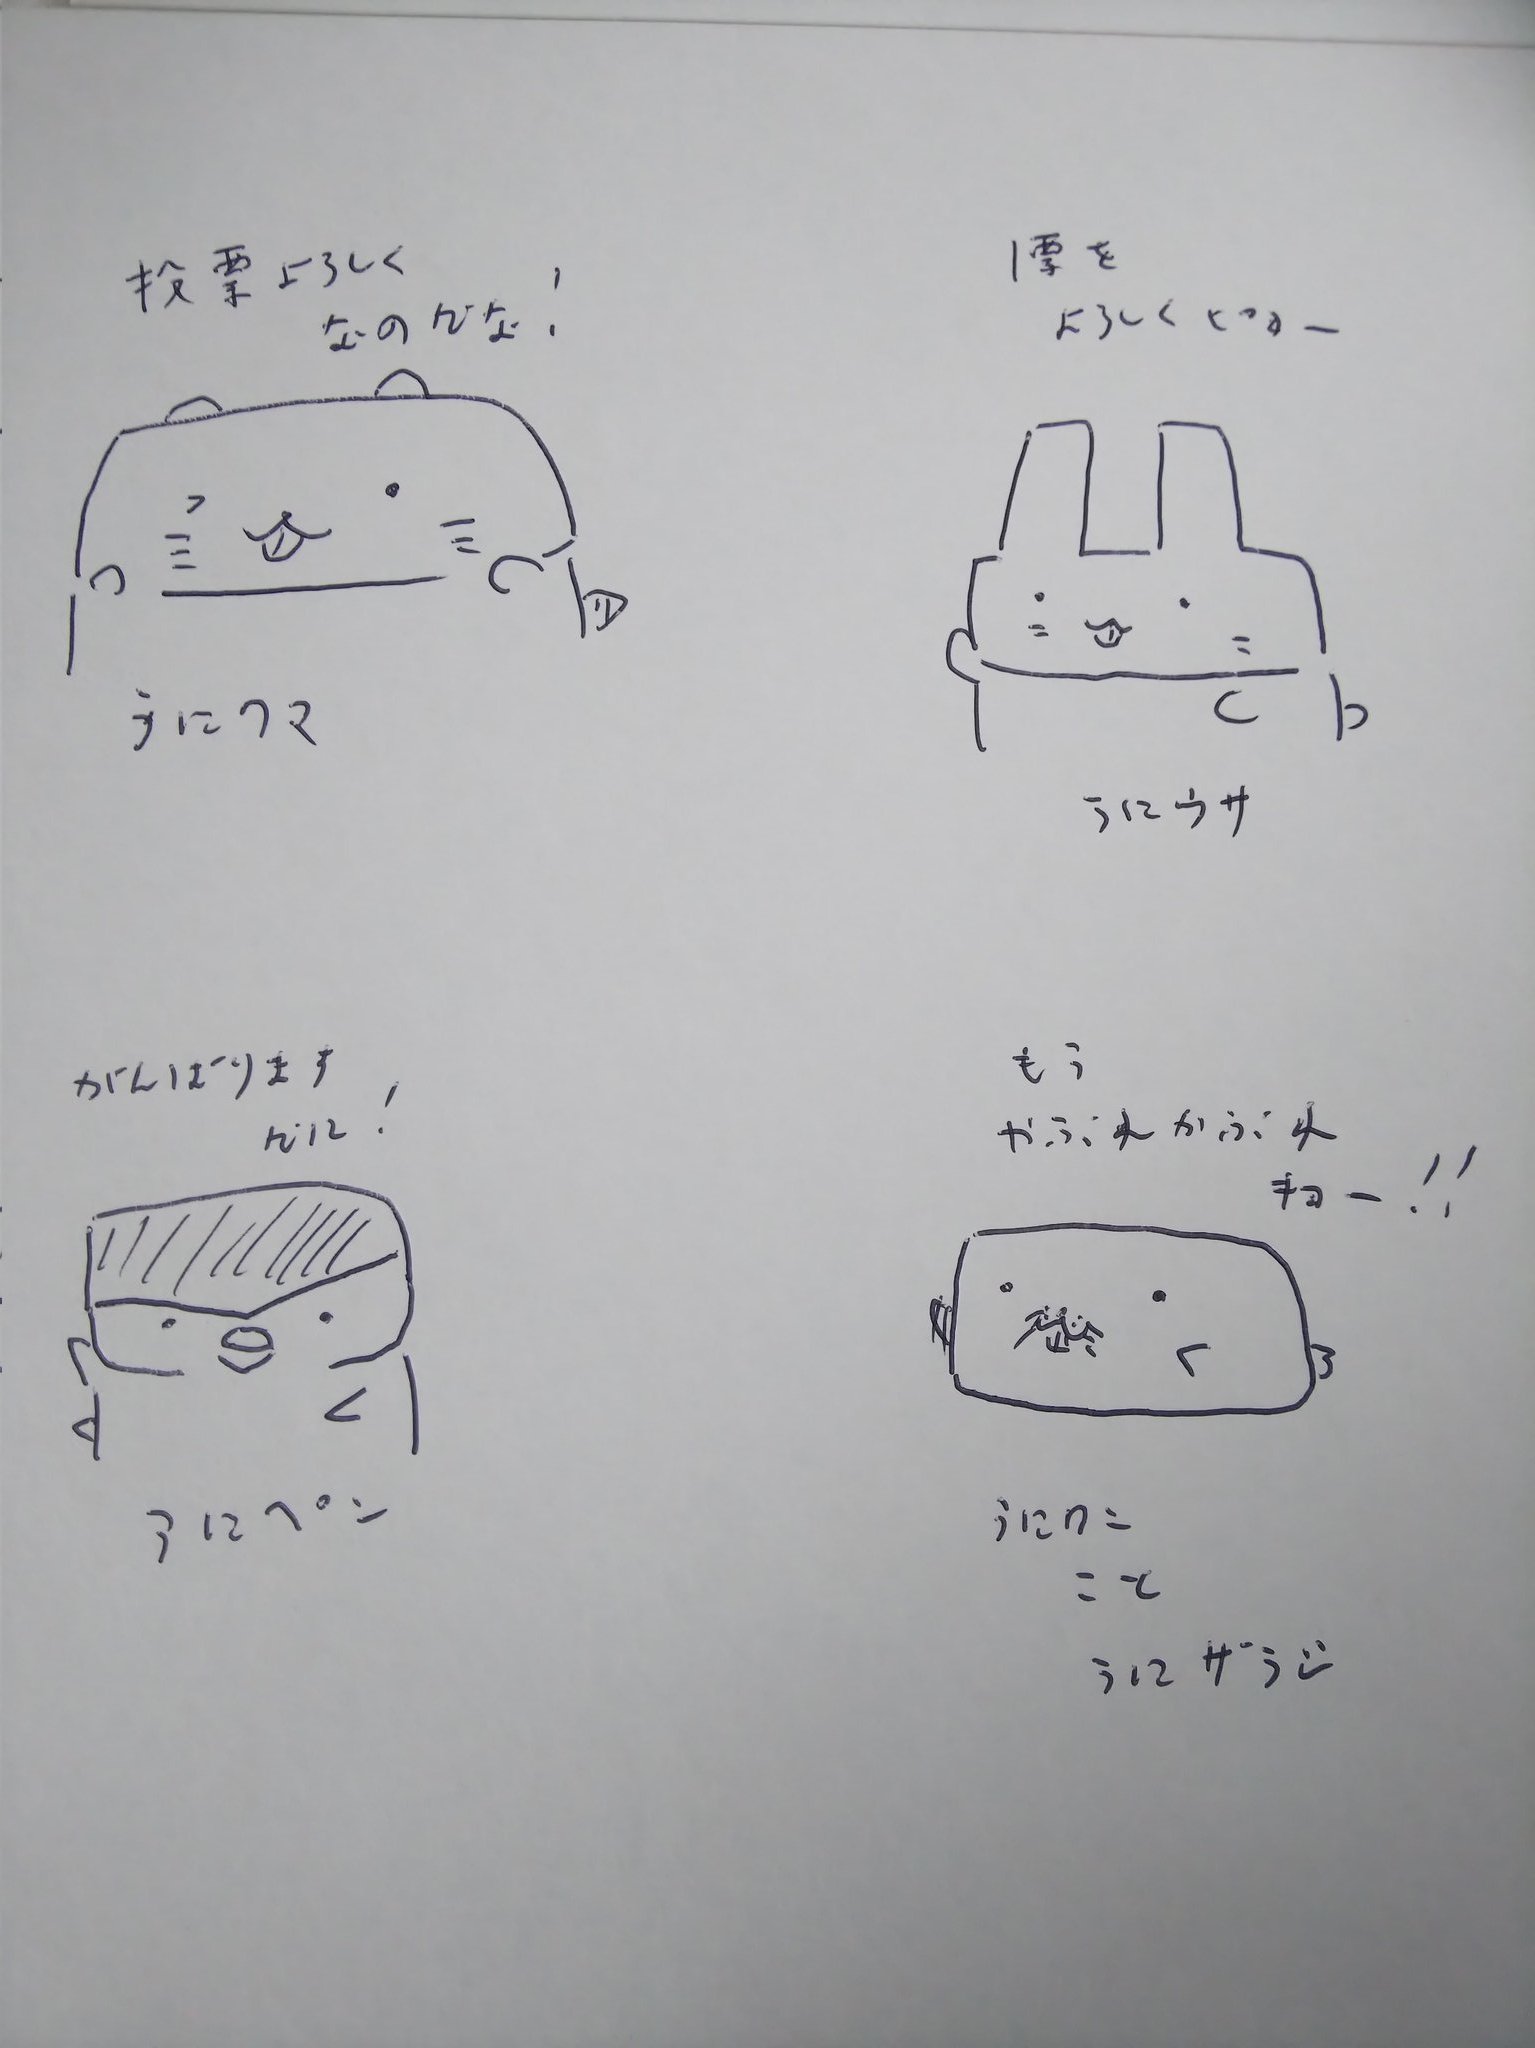 投票よろしく
なのだな!
1票を
よろしくピョー
うにクマ
うにウサ
がんばります
だに!
もう
かぶれかぶれ
キョー!!
うにペン
うにワニ
こと
うにザウジ